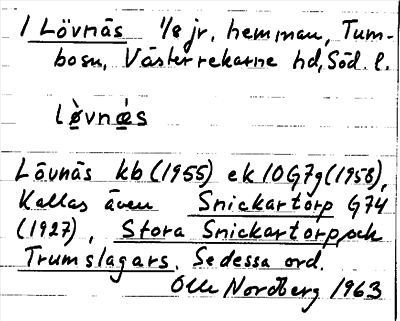 1 Lövnäs 1/8 jr, hemman, Tum-
bosn, Västerrekarne hd, Söd. l.
lø̀vnǿs
Lövnäs kb (1955) ek 10G7g (1958),
Kallas även Snickartorp G74
(1927), Stora Snickartorp, och
Trumslagars. Se dessa ord.
Olle Nordberg 1963